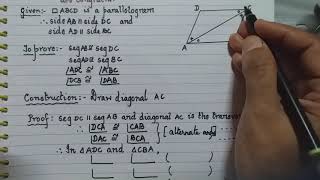 are congruent.
Given:- □ ABCD is a parallelogram
∴ side AB || side DC and
side AD || side BC
D
A
To prove:- seg AB ≅ seg DC
seg AD ≅ seg BC
∠ADC ≅ ∠ABC
∠DCB ≅ ∠DAB
Construction:- Draw diagonal AC
Proof: seg DC || seg AB and diagonal AC is the
∠DCA ≅ ∠CAB
∠DAC ≅ ∠BCA
(alternate
∴ In △ADC and △CBA,